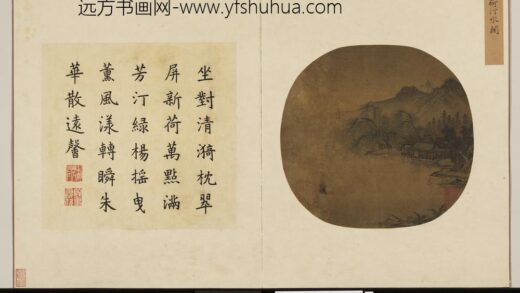 远方书画网-www.yfshuhua.com
荷汀水閣
坐對清漪枕翠
屏新荷萬點滿
芳汀綠楊搖曳
薰風漾轉瞬朱
華散遠馨